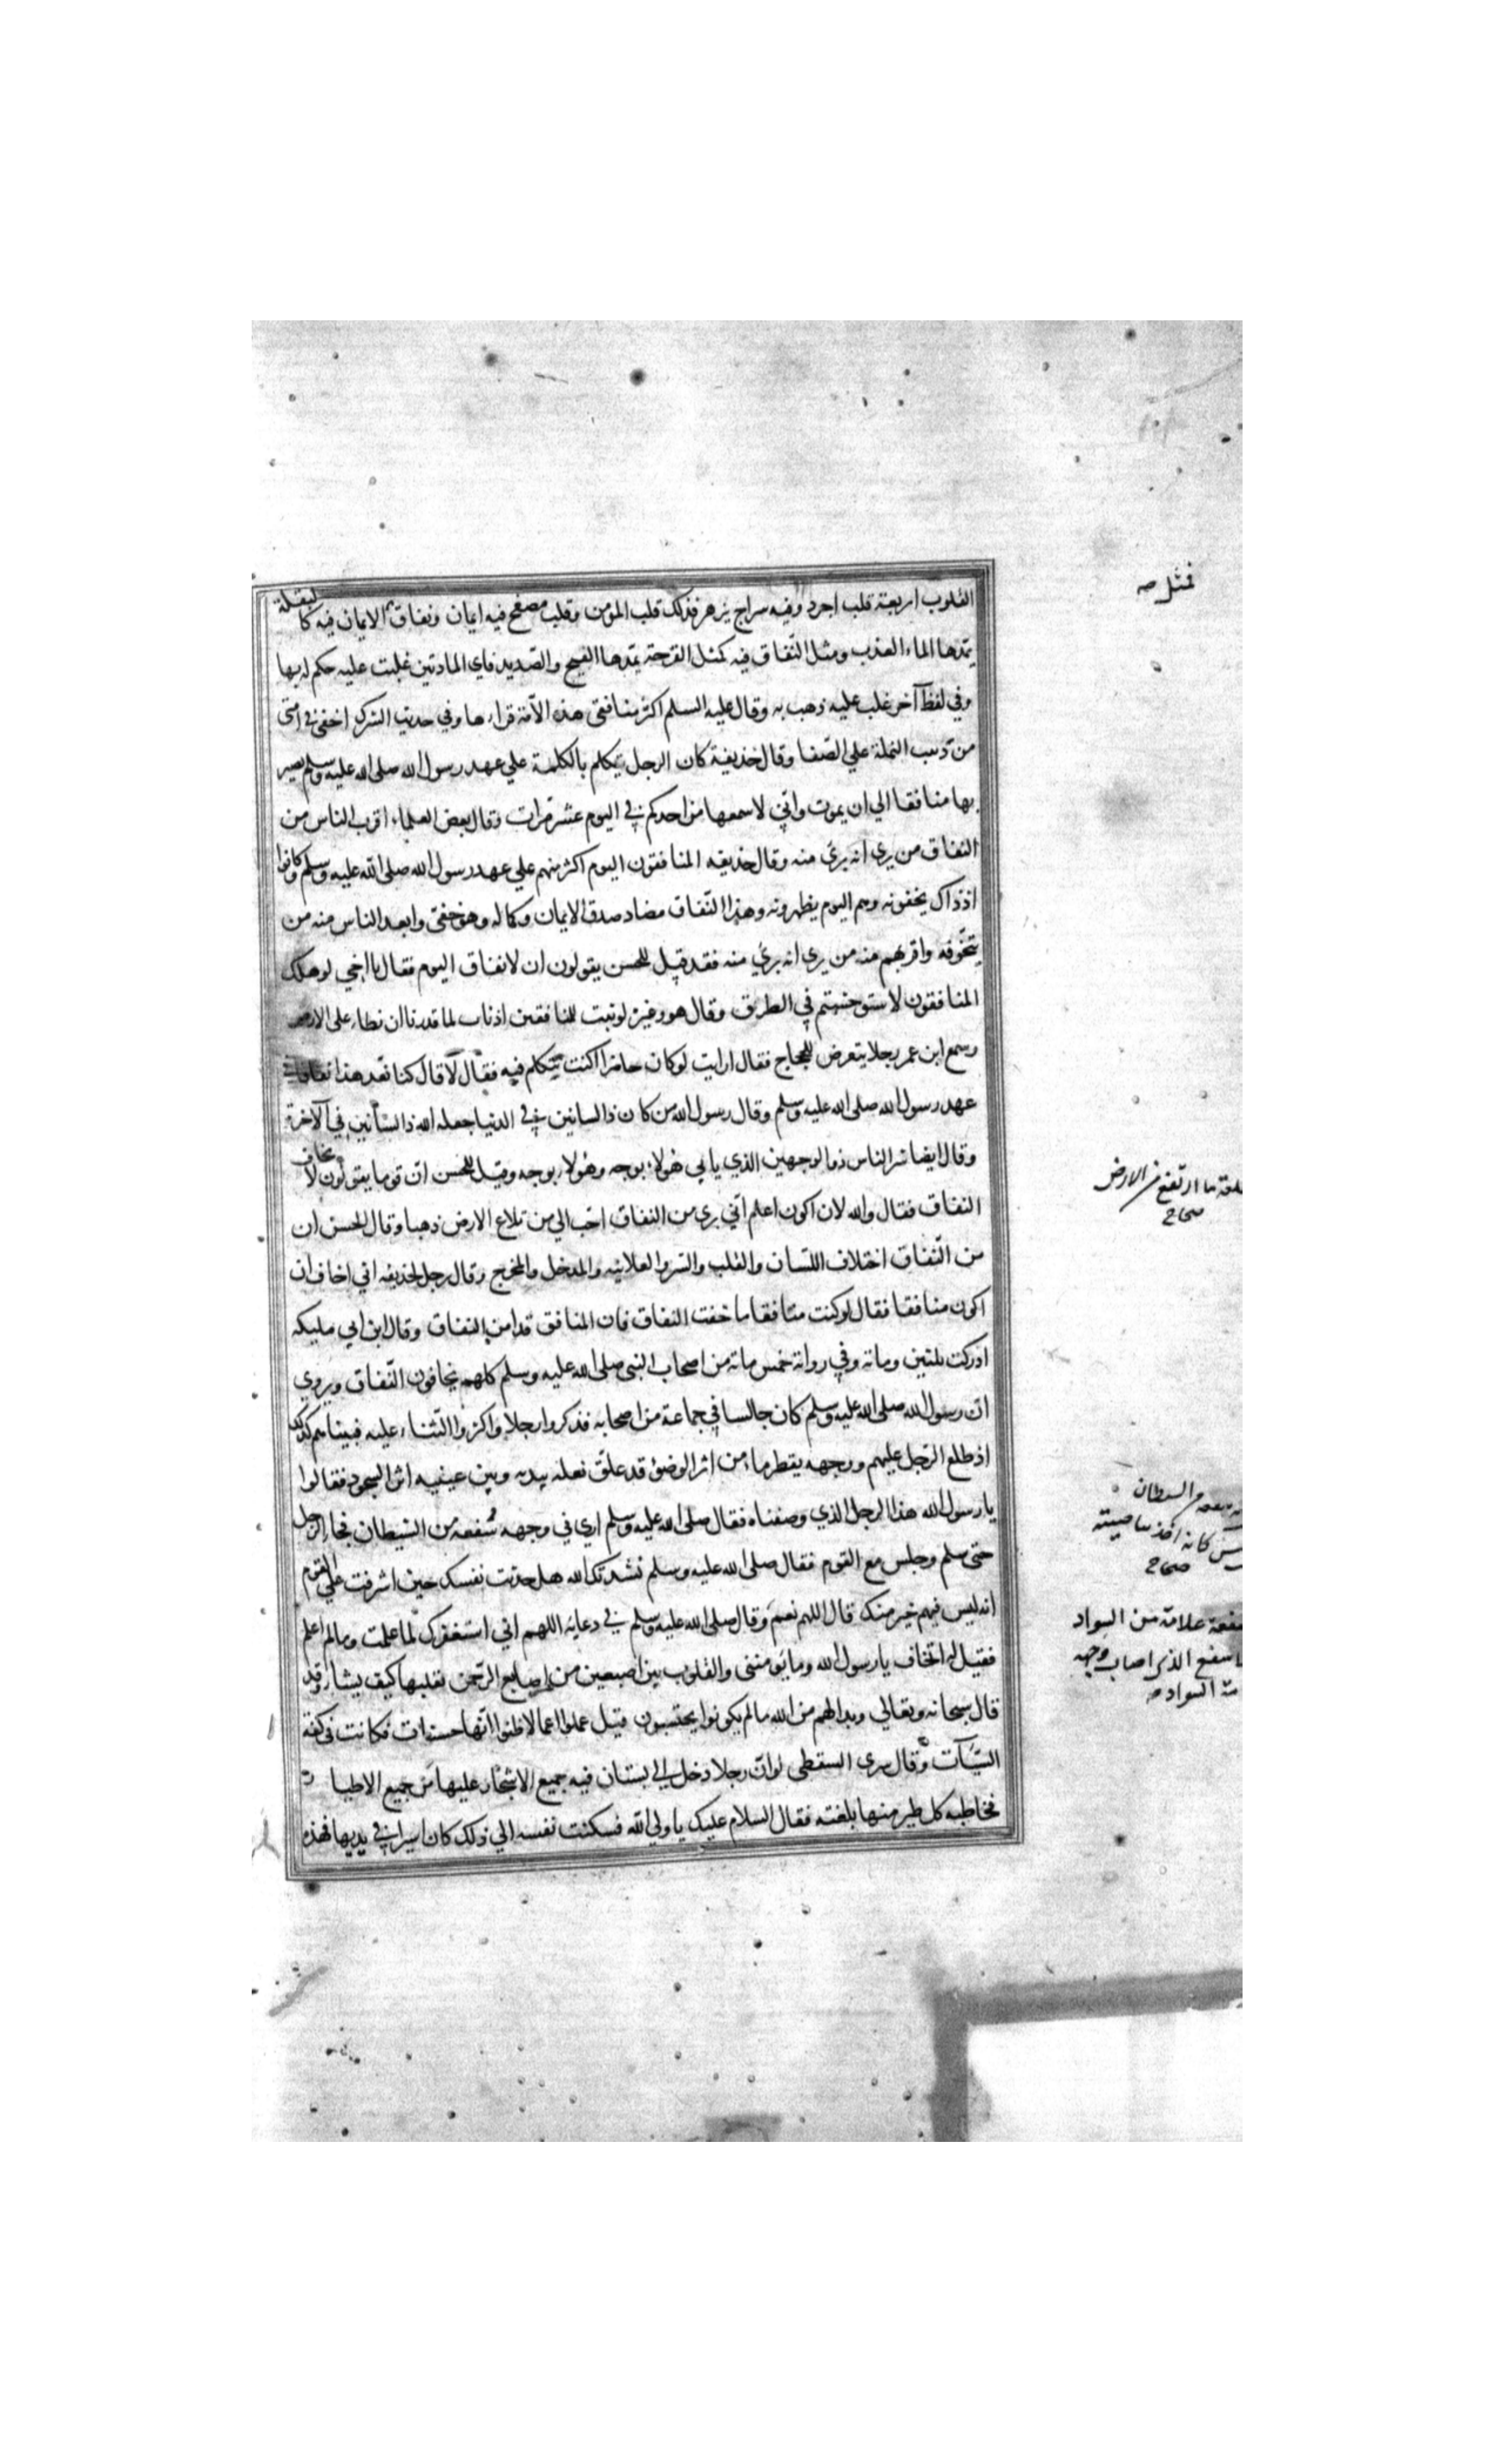 القلوب اربعة قلب اجرد وفيه سراج يزهر فذلك قلب المؤمن وقلب مصفح فيه ايمان ونفاق الايمان فيه كالبقلة
يمدها الماء العذب ومثل النفاق فيه كمثل القرحة يمدها القيح والصديد فاي المادتين غلبت عليه حكم له بها
وفي لفظ آخر غلب عليه ذهب به وقال عليه السلم اكثر منافقى هذه الأمة قراءها وفي حديث الشرك اخفى في امتي
من دبيب النملة علي الصفا وقال حذيفة كان الرجل يتكلم بالكلمة علي عهد رسول الله صلى الله عليه وسلم يصير
بها منافقا الي ان يموت واني لاسمعها من احدكم في اليوم عشر مرات وقال بعض العلماء اقرب الناس من
النفاق من يرى انه برئ منه وقال حذيفه المنافقون اليوم اكثر منهم علي عهد رسول الله صلى الله عليه وسلم وكانوا
اذ ذاك يخفونه وهم اليوم يظهرونه وهذا النفاق مضاد صدق الايمان وكماله وهو خفى وابعد الناس منه من
يتخوفه واقربهم منه من يري انه برئ منه فقد قيل للحسن يقولون ان لا نفاق اليوم فقال يا اخي لو هلك
المنافقون لاستوحشتم في الطرق وقال هو وغيره لو نبت للمنافقين اذناب لما قدرنا ان نطاء على الارض
وسمع ابن عمر رجلا يتعرض للحجاج فقال ارايت لو كان حاضرا اكنت تتكلم فيه فقال لا قال كنا نعد هذا نفاقا في
عهد رسول الله صلى الله عليه وسلم وقال رسول الله من كان ذا لسانين في الدنيا جعله الله ذا لسانين في الآخرة
وقال ايضا شر الناس ذو الوجهين الذي ياتي هؤلاء بوجه وهؤلاء بوجه وقيل للحسن ان قوما يقولون لا نخاف
النفاق فقال والله لان اكون اعلم اني برى من النفاق احب الي من تلاع الارض ذهبا وقال الحسن ان
من النفاق اختلاف اللسان والقلب والسر والعلانيه والمدخل والمخرج وقال رجل لحذيفه اني اخاف ان
اكون منافقا فقال لو كنت منافقا ما خفت النفاق فان المنافق قد امن النفاق وقال ابن ابي مليكه
ادركت ثلثين وماية وفي رواية خمس ماية من اصحاب النبي صلى الله عليه وسلم كلهم يخافون النفاق وروي
ان رسول الله صلى الله عليه وسلم كان جالسا في جماعة من اصحابه فذكروا رجلا واكثروا الثناء عليه فبينا هم كذلك
اذ طلع الرجل عليهم ووجهه يقطر ماء من اثر الوضوء قد علق نعله بيده وبين عينيه اثر السجود فقالوا
يا رسول الله هذا الرجل الذي وصفناه فقال صلى الله عليه وسلم اري في وجهه سفعه من الشيطان فجاء الرجل
حتى سلم وجلس مع القوم فقال صلى الله عليه وسلم نشدتك الله هل حدثت نفسك حين اشرفت علي القوم
انه ليس فيهم خير منك قال اللهم نعم وقال صلى الله عليه وسلم في دعايه اللهم اني استغفرك لما علمت وما لم اعلم
فقيل له اتخاف يا رسول الله وما يؤمننى والقلوب بين اصبعين من اصابع الرحمن يقلبها كيف يشاء وقد
قال سبحانه وتعالي وبدا لهم من الله ما لم يكونوا يحتسبون قيل عملوا اعمالا ظنوا انها حسنات فكانت في كفة
السيآت وقال سرى السقطى لو ان رجلا دخل الي بستان فيه جميع الاشجار عليها من جميع الاطيار
فخاطبه كل طير منها بلغته فقال السلام عليك يا ولي الله فسكنت نفسه الي ذلك كان اسيرا في يديها فهذه
فمثل صه
ما ارتفع من الارض
صحاح
من الشيطان
كانه اخذ بناصيته
صحاح
سفعة علامة من السواد
اسفع الذي اصاب وجهه
السواد